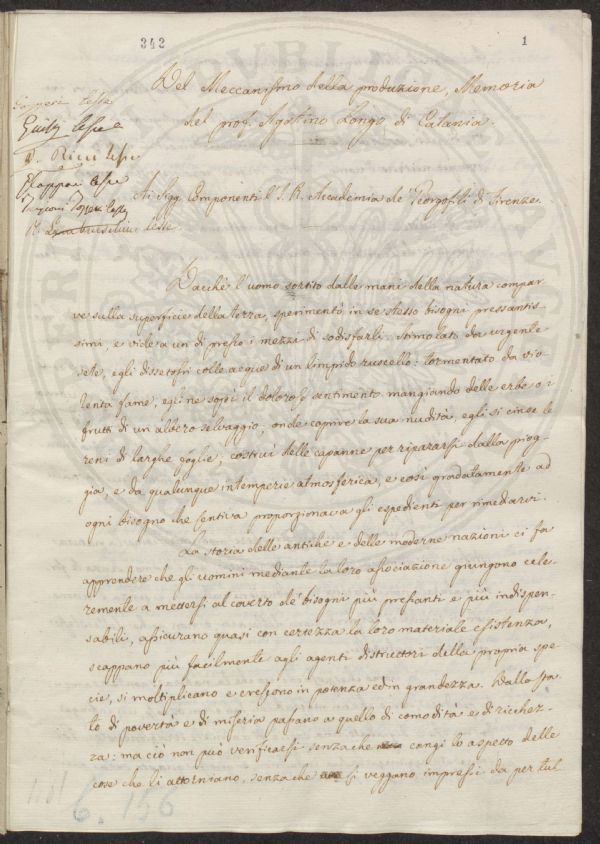 342
1
Del Meccanismo della produzione, Memoria
del prof. Agostino Longo di Catania.
lesse
lesse
P. Ricci lesse
lesse
lesse
lesse
Ai Sigg. Componenti l'I. R. Accademia de' Georgofili di Firenze
Dacchè l'uomo sortito dalle mani della natura compar-
ve sulla superficie della terra, sperimentò in se stesso bisogni pressantis-
simi, e vide a un di presso i mezzi di sodisfarli. Stimolato da urgente
sete, egli dissetossi colle acque di un limpido ruscello: tormentato da vio-
lenta fame, egli ne sopì il doloroso sentimento mangiando delle erbe o i
frutti di un albero selvaggio; onde coprire la sua nudità, egli si cinse le
reni di larghe foglie, costruì delle capanne per ripararsi dalla piog-
gia, e da qualunque intemperie atmosferica, e così gradatamente ad
ogni bisogno che sentiva proporzionava gli espedienti per rimediarvi.
La storia delle antiche e delle moderne nazioni ci fa
apprendere che gli uomini mediante la loro associazione giungono cele-
remente a mettersi al coverto de' bisogni più pressanti e più indispen-
sabili, assicurano quasi con certezza la loro materiale esistenza,
scappano più facilmente agli agenti distruttori della propria spe-
cie, si moltiplicano e crescono in potenza ed in grandezza. Dallo sta-
to di povertà e di miseria passano a quello di comodità e di ricchez-
za: ma ciò non può verificarsi senza che cangi lo aspetto delle
cose che li attorniano, senza che si veggano impressi da per tut-
6. 156